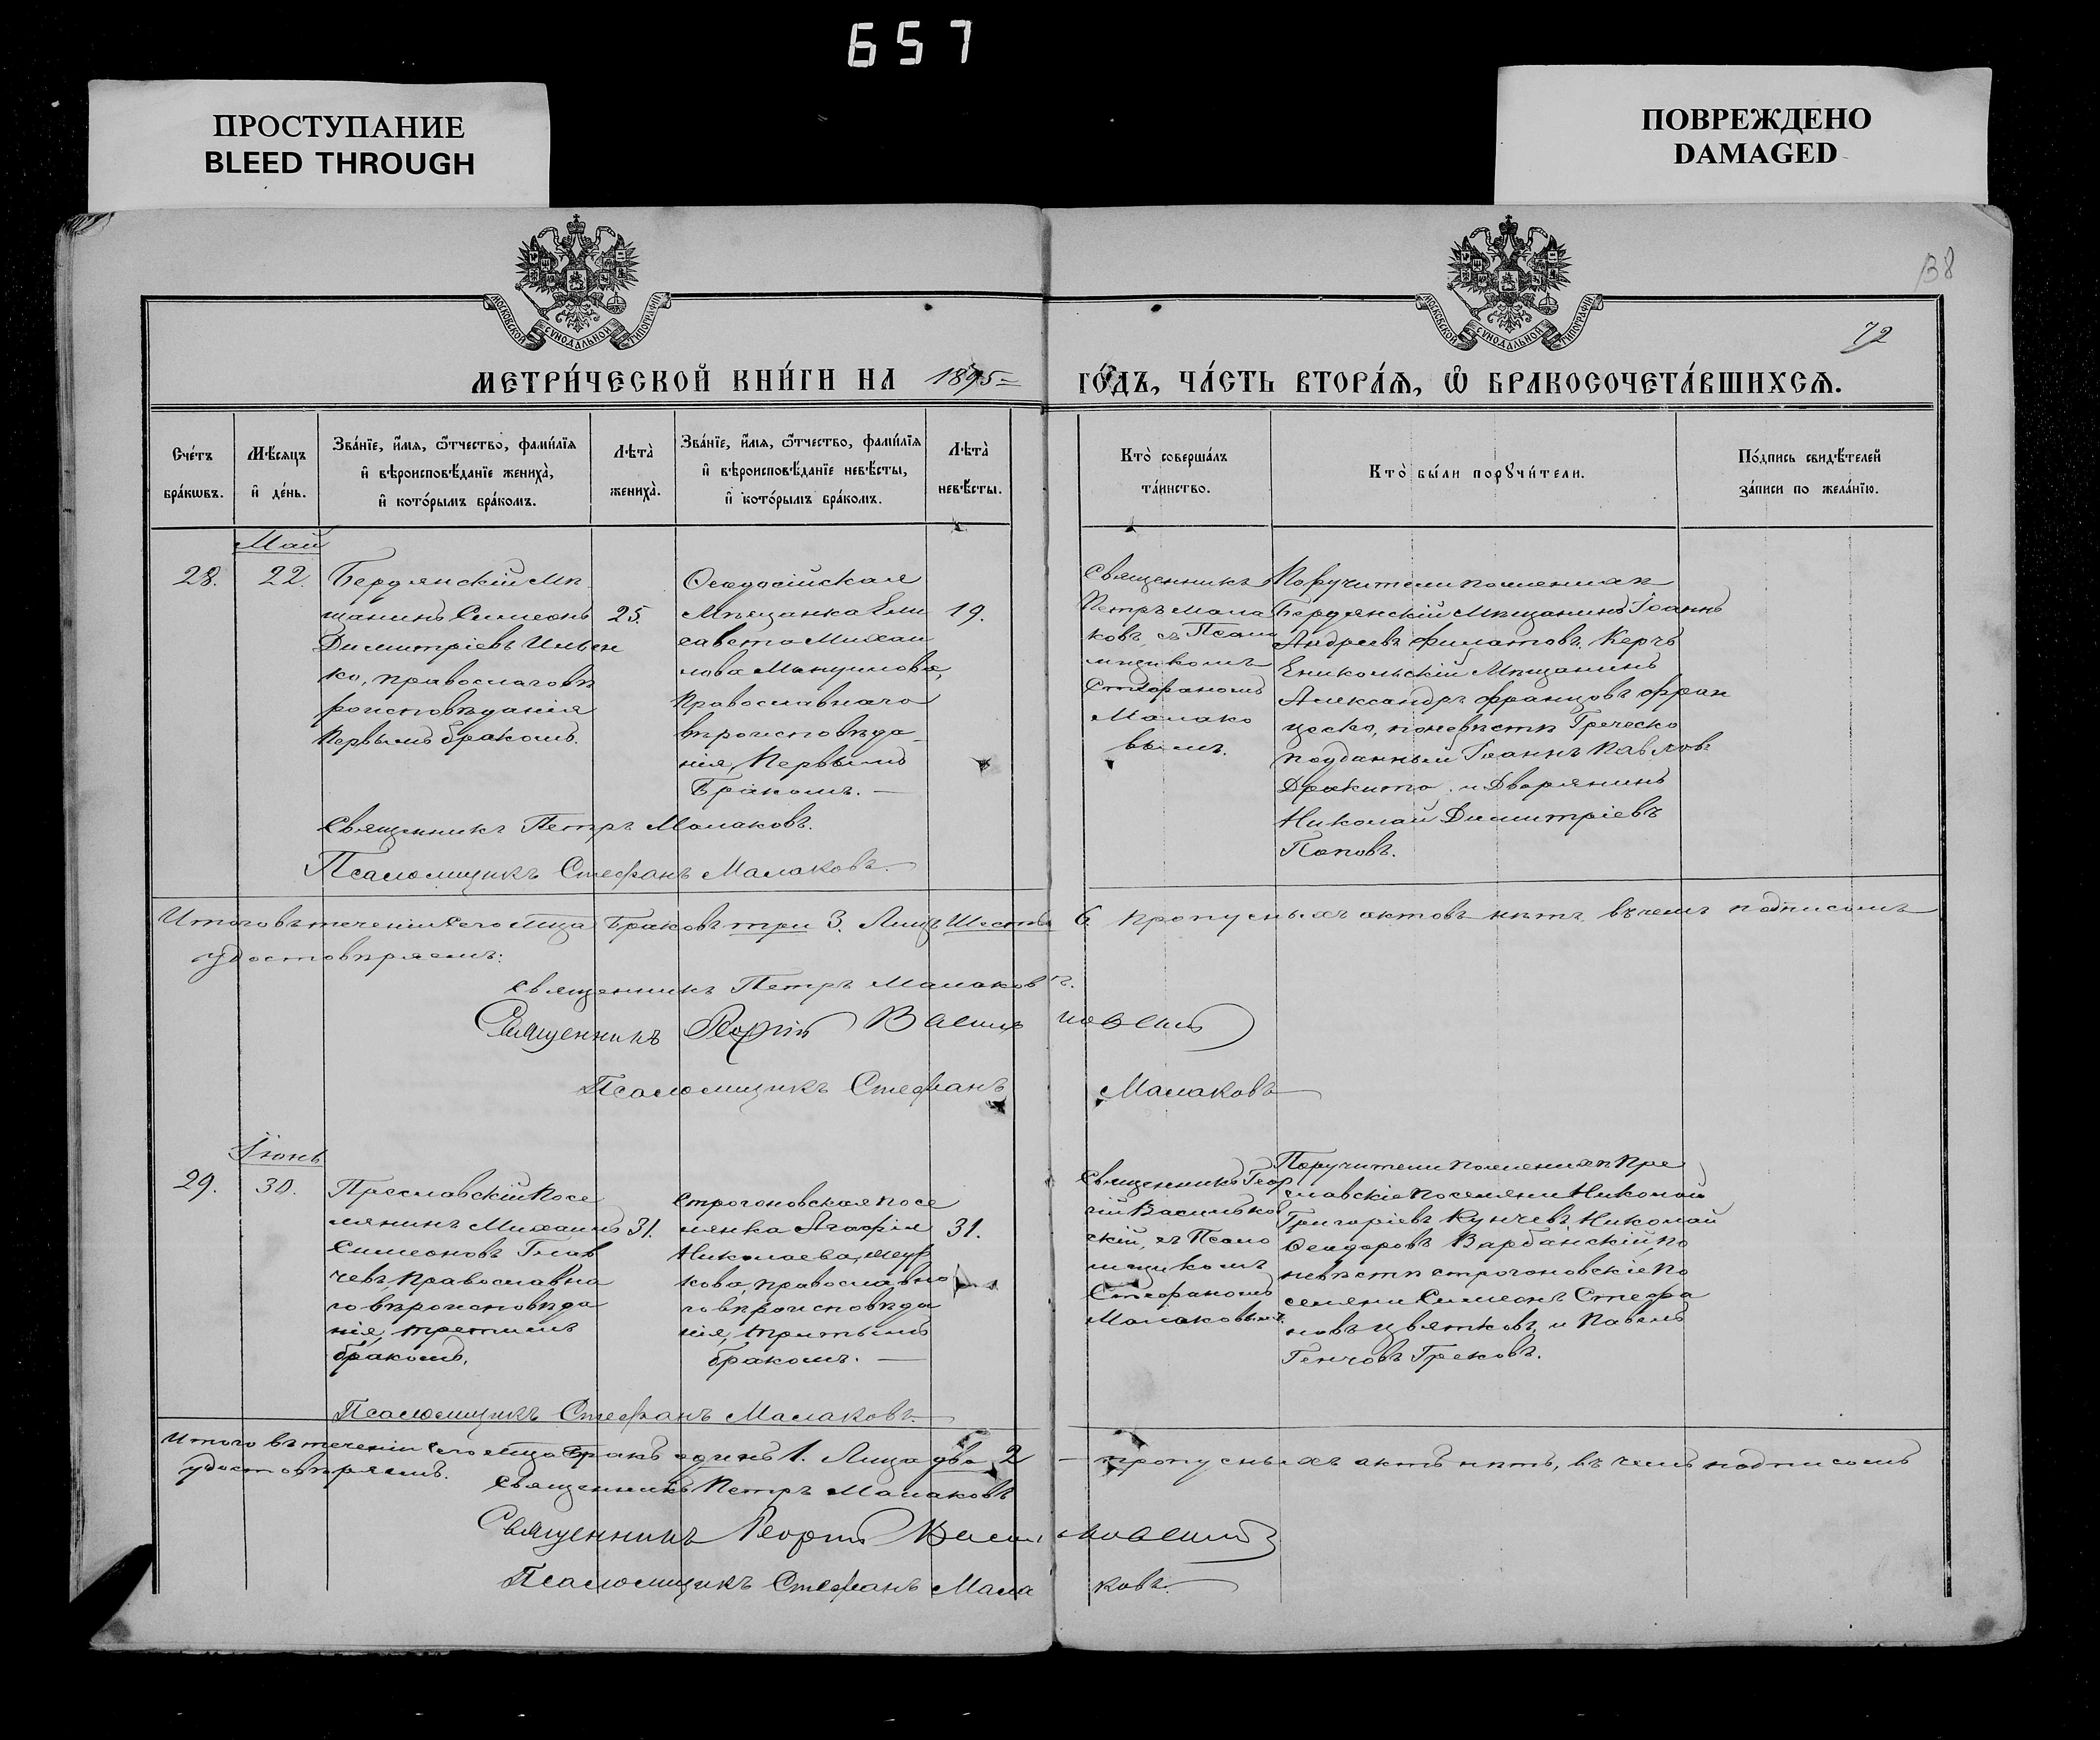 657
ПРОСТУПАНИЕ
BLEED THROUGH
ПОВРЕЖДЕНО
DAMAGED
МОСКОВСКОЙ СѴНОДАЛЬНОЙ ТИПОГРАФІИ
МОСКОВСКОЙ СѴНОДАЛЬНОЙ ТИПОГРАФІИ
38
72
МЕТРИ́ЧЕСКОЙ КНИ́ГИ НА 1895 ГО́ДЪ, ЧА́СТЬ ВТОРА́Ѧ, Ѽ БРАКОСОЧЕТА́ВШИХСѦ.
Сче́тъ
бра́кѡвъ.
Мѣ́сѧцъ
и҆ де́нь.
Зва́нїе, и҆́мѧ, ѻ҆́тчество, фами́лїѧ
и҆ вѣроисповѣ́данїе жениха̀,
и҆ кото́рымъ бра́комъ.
Лѣта̀
жениха̀.
Зва́нїе, и҆́мѧ, ѻ҆́тчество, фами́лїѧ
и҆ вѣроисповѣ́данїе невѣ́сты,
и҆ кото́рымъ бра́комъ.
Лѣта̀
невѣ́сты.
Кто̀ соверша́лъ
та́инство.
Кто̀ бы́ли порꙋчи́тели.
По́дпись свидѣ́телей
за́писи по жела́нїю.
Май
28.
22.
Бердянскій Мѣ
щанинъ Симеонъ
Димитріевъ Ильен
ко, православнаго вѣ
роисповѣданія
Первымъ бракомъ.
25.
Ѳеодосійская
Мѣщанка Ели
савета Михаи
лова Мануилова,
Православнаго
вѣроисповѣда
нія, Первымъ
Бракомъ.
19.
Священникъ
Петръ Мала
ковъ съ Псало
мщикомъ
Стефаномъ
Малако
вымъ.
Поручители по женихѣ
Бердянскій Мѣщанинъ Іоаннъ
Андреевъ Филатовъ, Керчъ
Еникольскій Мѣщанинъ
Александръ Францовъ Фран
цеско, по невѣстѣ Греческо
подданный Іоаннъ Павловъ
Дракито и Дворянинъ
Николай Димитріевъ
Поповъ.
Священникъ Петръ Малаковъ.
Псаломщикъ Стефанъ Малаковъ.
Итого въ теченіи сего мца Браковъ три 3. Лицъ Шесть 6. пропусныхъ актовъ нѣтъ въ чемъ подписомъ
удостовѣряемъ:
Священникъ Петръ Малаковъ.
Священникъ Георгій Васильковскій
Псаломщикъ Стефанъ Малаковъ
Іюнь
29.
30.
Преславскій Посе
лянинъ Михаилъ
Симеоновъ Глав
чевъ, Православна
го вѣроисповѣда
нія, третьимъ
бракомъ.
31.
Строгоновская посе
лянка Агафія
Николаева,
кова, православна
го вѣроисповѣда
нія, третьимъ
бракомъ.
31.
Священникъ Геор
гій Васильков
скій, съ Псало
мщикомъ
Стефаномъ
Малаковымъ.
Поручители по женихѣ Пре
славскіе поселяне Николай
Григоріевъ Кунчевъ, Николай
Ѳеодоровъ Варбанскій, по
невѣстѣ Строгоновскіе по
селяне Симеонъ Стефа
новъ Цвятковъ, и Павелъ
Генчовъ Грековъ.
Псаломщикъ Стефанъ Малаковъ.
Итого въ теченіи сего мца Бракъ одинъ 1. Лица два 2 пропусныхъ актъ нѣтъ, въ чемъ подписомъ
удостовѣряемъ.
Священникъ Петръ Малаковъ
Священникъ Георгій Васильковскій
Псаломщикъ Стефанъ Малаковъ.